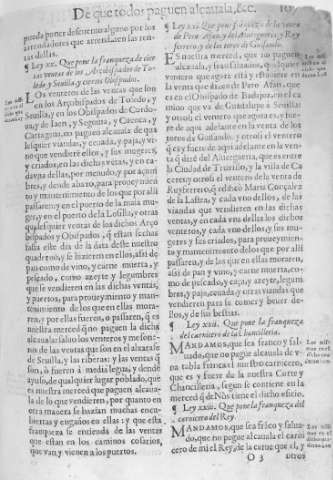 De que todos paguen alcauala, &c. 107
pueda poner descuento alguno por los
arrendadores que arrendaren las rentas
dellas.
¶ Ley xx. Que pone la franqueza de ciertas
ventas de los Arçobispados de Toledo
y Seuilla, y ciertos Obispados.
LOs venteros de las ventas que son
en los Arçobispados de Toledo, y
Seuilla, y en los Obispados de Cordoua,
y de Iaen, y Segouia, y Cuenca, y
Cartagena, no paguen alcauala de qualquier
viandas, y ceuada, y paja, y vino
que vendieren ellos, y sus mugeres, y
criados, en las dichas ventas, y en cada
vna dellas, por menudo, y por açumbres,
y dende abaxo, para proueymiento
y mantenimiento de los que por alli
passaren: y en el puerto de la mala muger,
y en el puerto de la Losilla, y otras
qualesquier ventas de los dichos Arçobispados
y Obispados, q̃ estan fechas
fasta este dia de la data deste nuestro
quaderno, y se hizieren en ellos, assi de
pan como de vino, y carne muerta, y
pescado, como azeyte y legumbres
que se vendieren en las dichas ventas,
y puertos, para proueymiento y mantenimiento
de los que en ellas moraren,
y por ellas fueren, o passaren, q̃ es
nuestra merced q̃ no paguen la dicha
alcauala: saluo los venteros y mesoneros
de las ventas que son en el alxarafe
de Seuilla, y las riberas: y las ventas q̃
son, o fueren a media legua, y dende
ayuso, de qualquier lugar poblado, que
es nuestra merced que paguen alcauala
de lo que vendieren, por quanto en
otra manera se hazian muchas encubiertas
y engaños en ellas: y q̃ esta
franqueza se entienda de las ventas
que estan en los caminos cosarios,
que van y vienen a los puertos.
¶ Ley xxi. Que pone la franqueza de la venta
de Pero Afan, y del Aluerguera, y Rey
ferrero y de los toros de Guisando.
ES nuestra merced, que no paguen
alcauala, y sea franco, y quito el
ventero que agora esta y estuuiere en
la venta que dizen de Pero Afan, que
es en el Obispado de Badajoz, en el camino
que va de Guadalupe a Seuilla:
y otrosi el ventero que es, y fuere de
aqui adelante en la venta de los
toros de Guisando. y otrosi el ventero
q̃ es y fuere de aqui adelante en la venta
q̃ dizẽ del Aluerguera, que es entre
la Ciudad de Truxillo, y la villa de Caceres:
y otrosi el ventero de la venta de
Ruyferrero, q̃ edificò Maria Gonçalez
de la Lastra, y cada vno dellos, de las
viandas que vendieren en las dichas
ventas, y en cada vna dellas los dichos
venteros, y cada vno dellos, y sus mugeres
y sus criados, para proueymiento
y mantenimiento de los que por alli
passaren, y de los que en ellas moraren,
assi de pan y vino, y carne muerta, como
de pescado, y caça, y azeyte, legumbres,
y paja, ceuada y otras viandas que
vendieren para se comer y beuer dellos,
y de sus bestias.
¶ Ley xxii. Que pone la franqueza
del carnicero de la Chancilleria.
MANDAMOS, que sea franco y saluado,
que no pague alcauala de vna
tabla franca el nuestro carnicero,
que es y fuere de la nuestra Corte y
Chancilleria, segun se contiene en la
merced q̃ de Nòs tiene el dicho oficio.
¶ Ley xxiii. Que pone la franqueza del
carnicero del Rey.
MANDAMOS, que sea frãco y saluado,
que no pague alcauala el carnicero
de mi el Rey, de la carne que el, y
O 3 otros